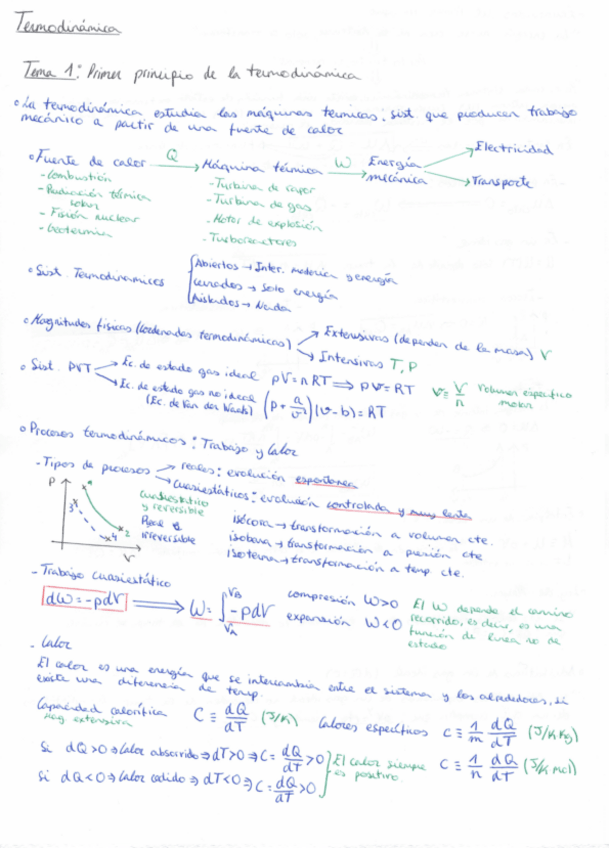 Termodinámica
Tema 1: Primer principio de la termodinámica
° La termodinámica estudia las máquinas térmicas: sist. que producen trabajo
mecánico a partir de una fuente de calor
° Fuente de calor →Q Máquina térmica →W Energía mecánica → Electricidad
→ Transporte
- Combustión
- Radiación térmica solar
- Fisión nuclear
- Geotermia
- Turbina de vapor
- Turbina de gas
- Motor de explosión
- Turboreactores
° Sist. Termodinámicos { Abiertos → Inter. materia y energía
Cerrados → Solo energía
Aislados → Nada
° Magnitudes físicas (Coordenadas termodinámicas) → Extensivas (dependen de la masa) V
→ Intensivas T, P
° Sist. PVT → Ec. de estado gas ideal pV = nRT ⟹ pv = RT v ≡ V/n Volumen específico molar
→ Ec. de estado gas no ideal (Ec. de Van der Waals) (p + a/v²)(v - b) = RT
° Procesos termodinámicos: Trabajo y Calor
- Tipos de procesos → reales: evolución espontánea
→ Cuasiestáticos: evolución controlada y muy lenta
P
3
4
2
V
Cuasiestático
y reversible
Real
irreversible
isócora → transformación a volumen cte.
isobara → transformación a presión cte
isoterma → transformación a temp cte.
- Trabajo cuasiestático
dW = -pdV ⟹ W = ∫ -pdV
V_B
V_A
compresión W>0
expansión W<0
El W depende el camino
recorrido, es decir, es una
función de línea no de
estado
- Calor
El calor es una energía que se intercambia entre el sistema y los alrededores, si
existe una diferencia de temp.
Capacidad calorífica C ≡ dQ/dT (J/K) Calores específicos c ≡ 1/m dQ/dT (J/K kg)
Mag extensiva
Si dQ>0 ⇒ Calor absorvido ⇒ dT>0 ⇒ C = dQ/dT >0
Si dQ<0 ⇒ Calor cedido ⇒ dT<0 ⇒ C = dQ/dT >0
El calor siempre
es positivo.
c ≡ 1/n dQ/dT (J/K mol)